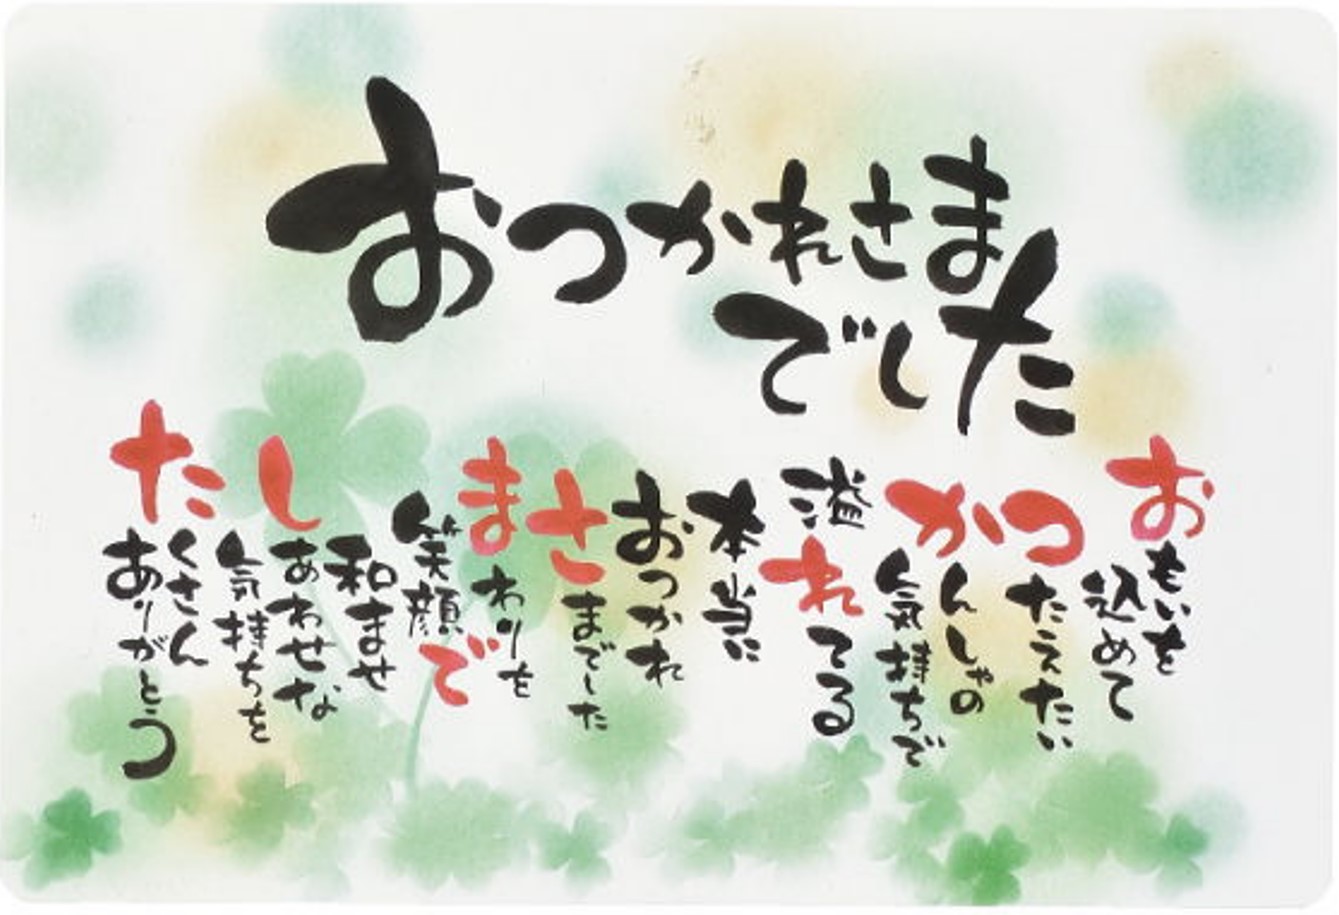 おつかれさま
でした
おもいを
込めて
つたえたい
かんしゃの
気持ちで
溢れてる
本当に
おつかれ
さまでした
まわりを
笑顔で
和ませ
しあわせな
気持ちを
たくさん
ありがとう